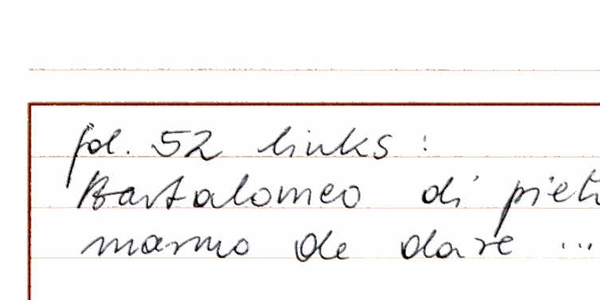 fol. 52 links :
Bartalomeo di piet
marmo de dare ...